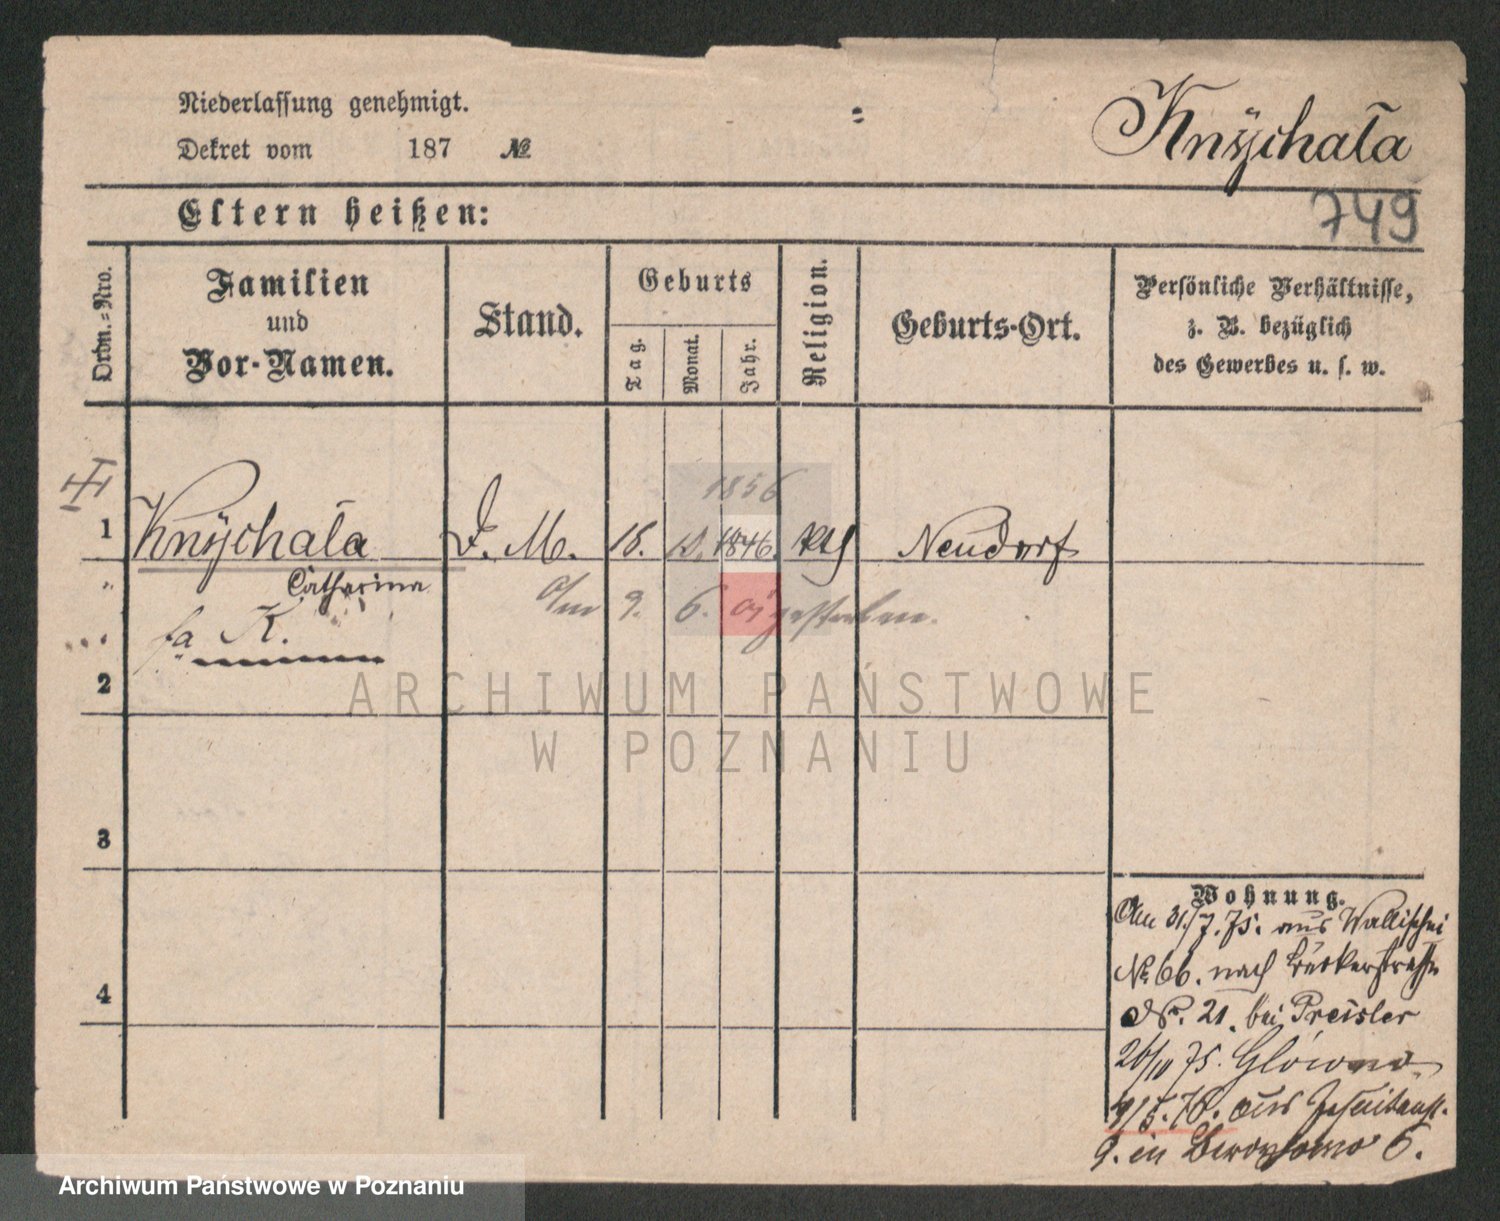 Niederlassung genehmigt.
Dekret vom 187 №
Knÿchała
749
Eltern heißen:
Ordn.-Nro.
Familien
und
Vor-Namen.
Stand.
Geburts
Tag.
Monat.
Jahr.
Religion.
Geburts-Ort.
Persönliche Verhältnisse,
z. B. bezüglich
des Gewerbes u. s. w.
1856
1 Knÿchała D. M. 18. 1846. kth Neudorf
Catharina
am 9. 6. gestorben.
fa K.
2
ARCHIWUM PAŃSTWOWE
W POZNANIU
3
4
Wohnung.
Am 31/7.75. aus Wallischei
№ 66. nach
№. 21. bei Preisler
26/10 75. Główno
4/5.76. aus Jesuitenst.
9. in 6.
Archiwum Państwowe w Poznaniu